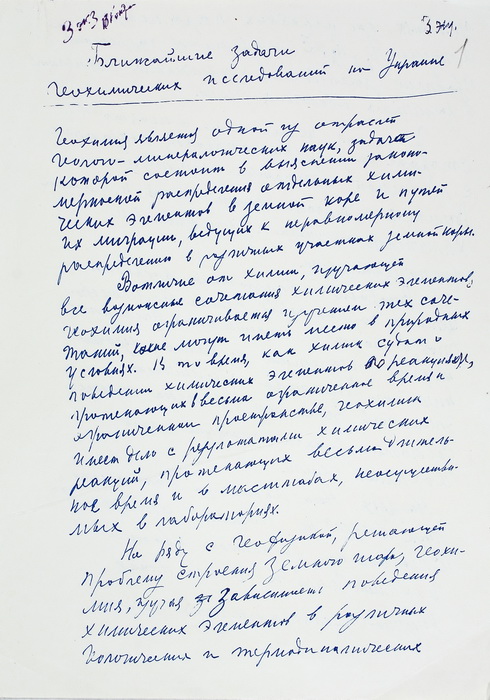 3 экз
3 экз.
1
Ближайшие задачи
геохимических исследований на Украине
Геохимия является одной из отраслей
геолого-минералогических наук, задача
которой состоит в выяснении законо-
мерностей распределения отдельных хими-
ческих элементов в земной коре и путей
их миграции, ведущих к неравномерному
распределению в различных участках земной коры.
Вотличие от химии, изучающей
все возможные сочетания химических элементов,
геохимия ограничивается изучением тех соче-
таний, какие могут иметь место в природных
условиях. В то время, как химик судит о
поведении химических элементов по реакциям,
протекающих в весьма ограниченное время и
ограниченном пространстве, геохимик
имеет дело с результатами химических
реакций, протекающих весьма длитель-
ное время и в масштабах, неосуществи-
мых в лабораториях.
На ряду с геофизикой, решающей
проблему строения Земного шара, геохи-
мия, изучая зависимость поведения
химических элементов в различных
геологических и термодинамических